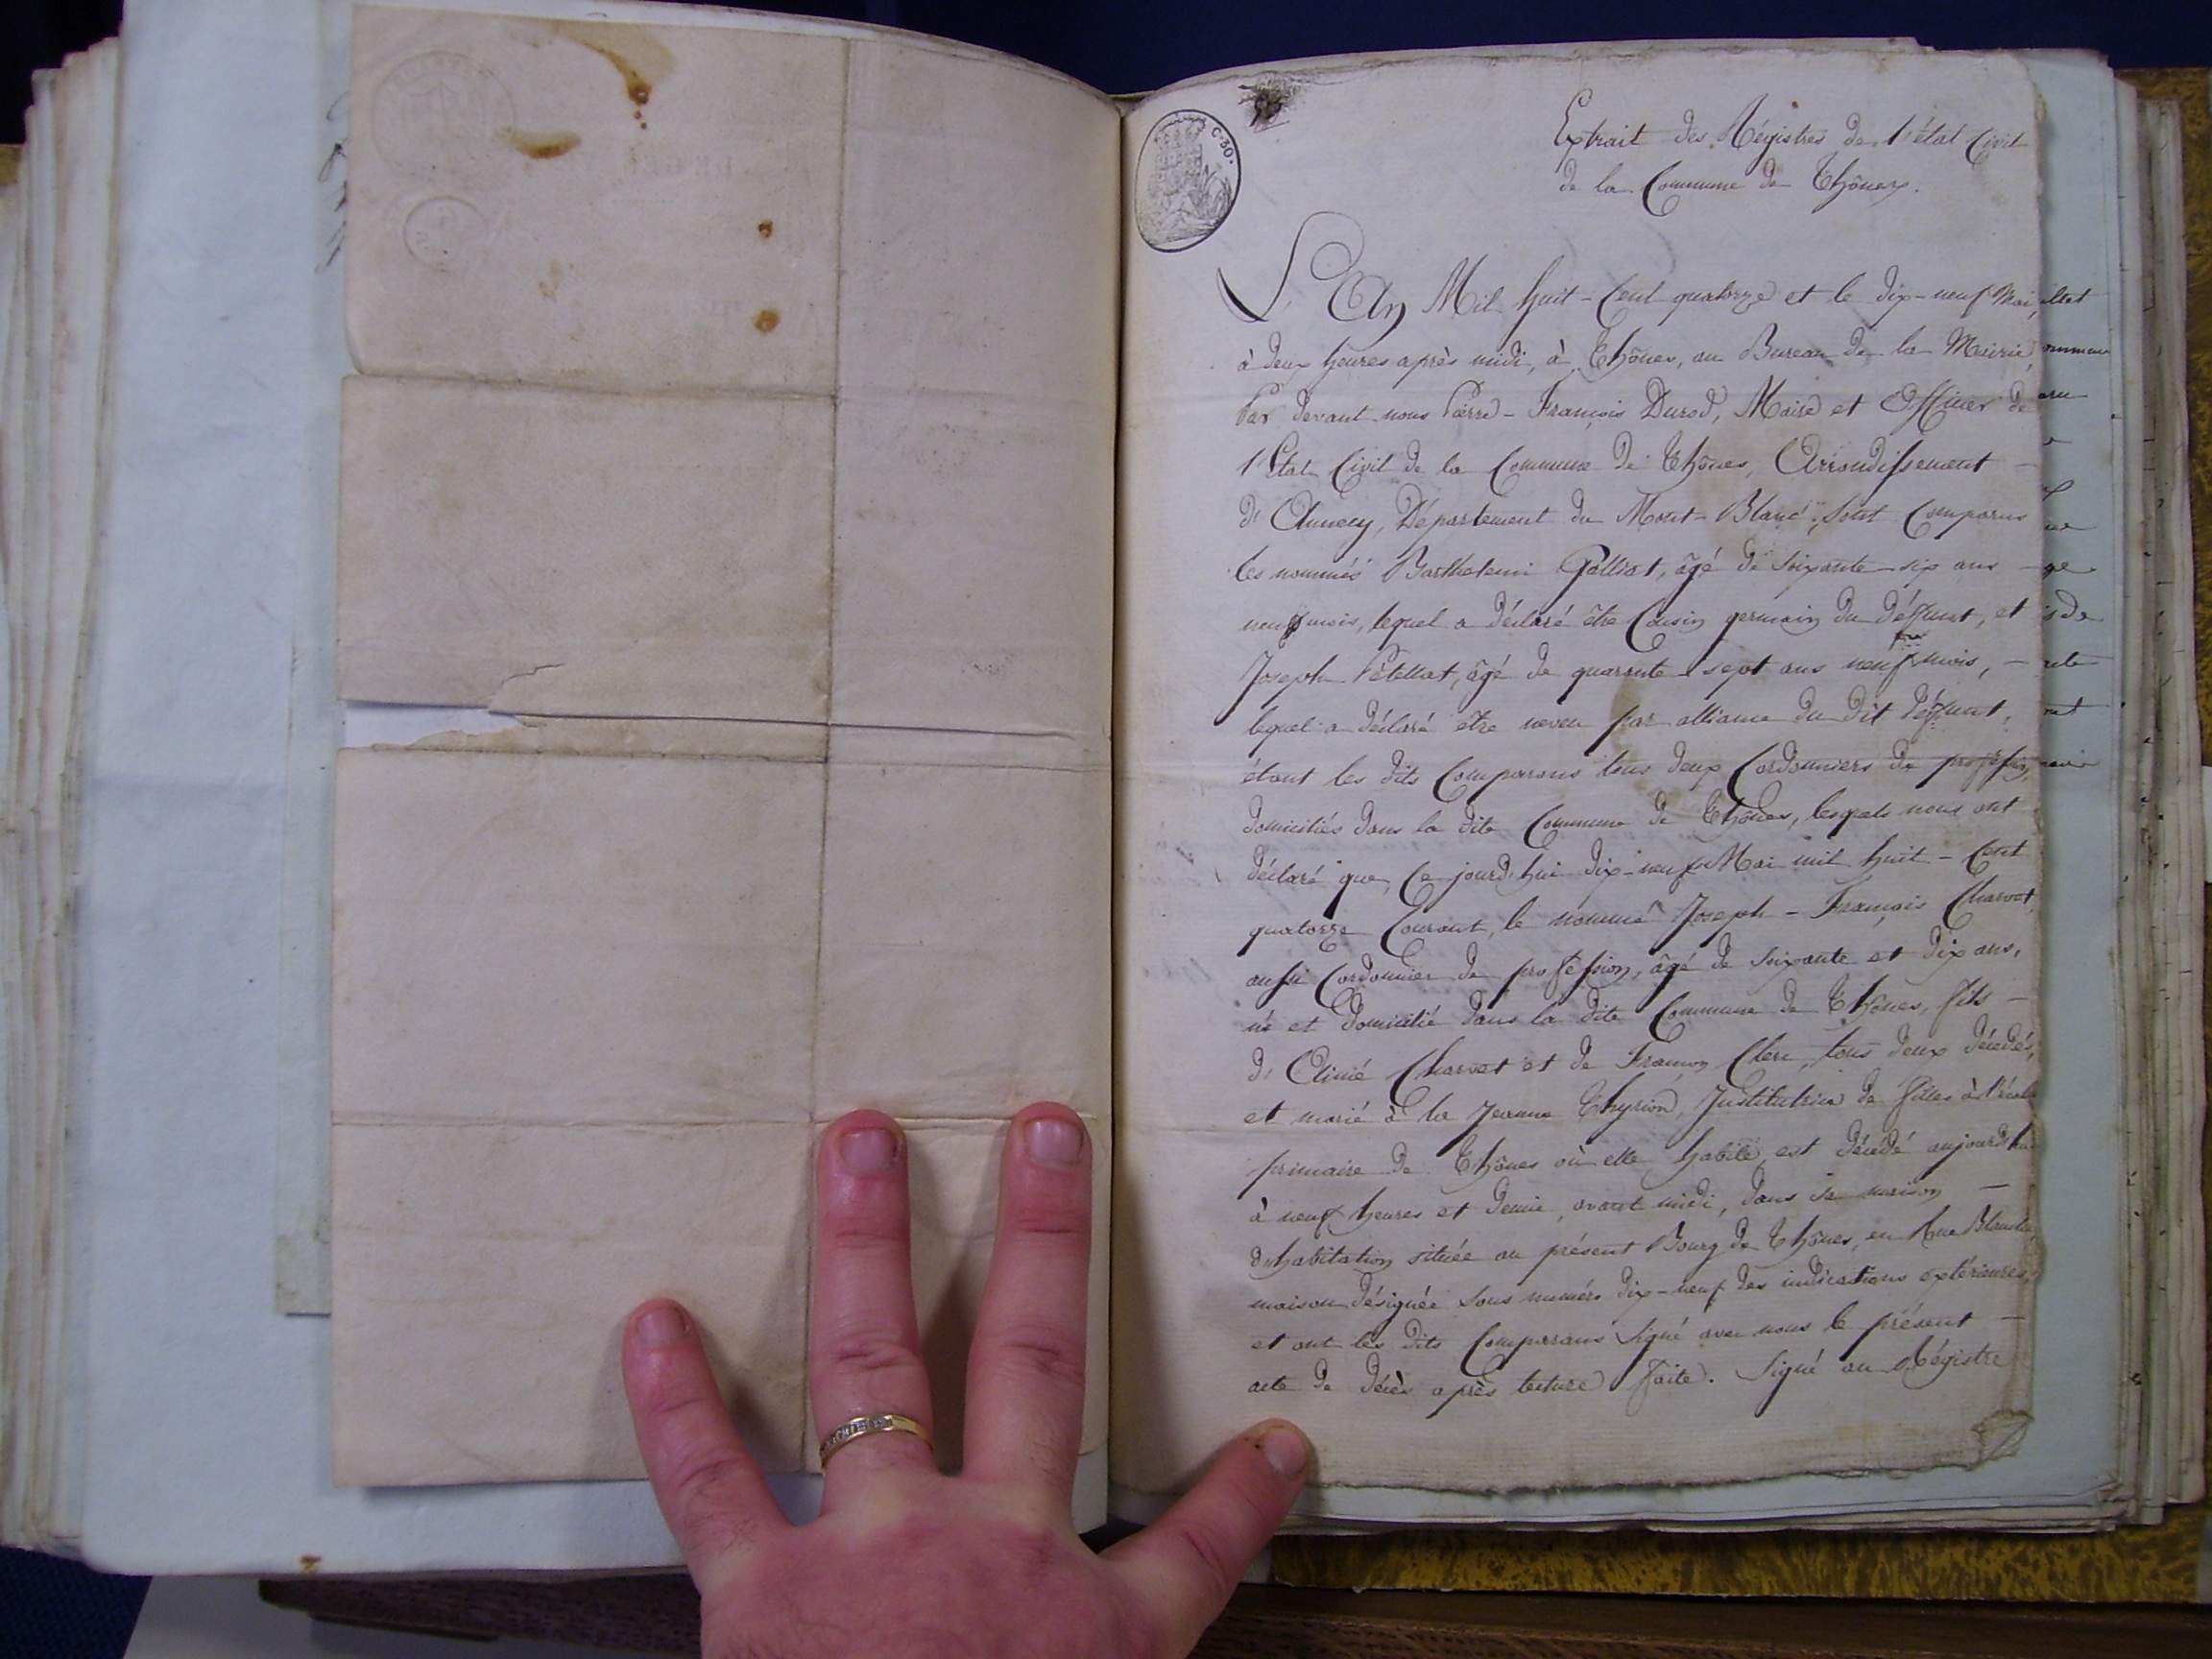 C. 30.
Extrait des Régistres de l'état Civil
de la Commune de Thônes.
L'An Mil huit-Cent quatorze et le dix-neuf Mai,
à deux heures après midi, à Thônes, au Bureau de la Mairie,
Par devant nous Pierre-François Durod, Maire et Officier de
l'Etat Civil de la Commune de Thônes, Arrondissement
d'Annecy, Département du Mont-Blanc, sont Comparus
les nommés Barthelemi Golliet, âgé de soixante-six ans
neuf mois, lequel a déclaré être Cousin germain du déffunt, et
Joseph Pètellat, âgé de quarante-sept ans neuf mois,
lequel a déclaré être neveu par alliance du dit déffunt,
étant les dits Comparans tous deux Cordonniers de profession,
domiciliés dans la dite Commune de Thônes, lesquels nous ont
déclaré que, ce jourd'hui dix-neuf Mai mil huit-Cent
quatorze Courant, le nommé Joseph-François Charvet,
aussi Cordonnier de profession, âgé de soixante et dix ans,
né et domicilié dans la dite Commune de Thônes, fils
d'Aimé Charvet et de Françoy Clerc, tous deux décédés,
et marié à la Jeanne Thyrion, Institutrice de filles à l'école
primaire de Thônes où elle habite, est décédé aujourd'hui
à neuf heures et demie, avant midi, dans sa maison
d'habitation située au présent Bourg de Thônes, en Rue Blanche,
maison désignée sous numéro dix-neuf des indications extérieures,
et ont les dits Comparans signé avec nous le présent
acte de décès après lecture faite. Signé au Régistre